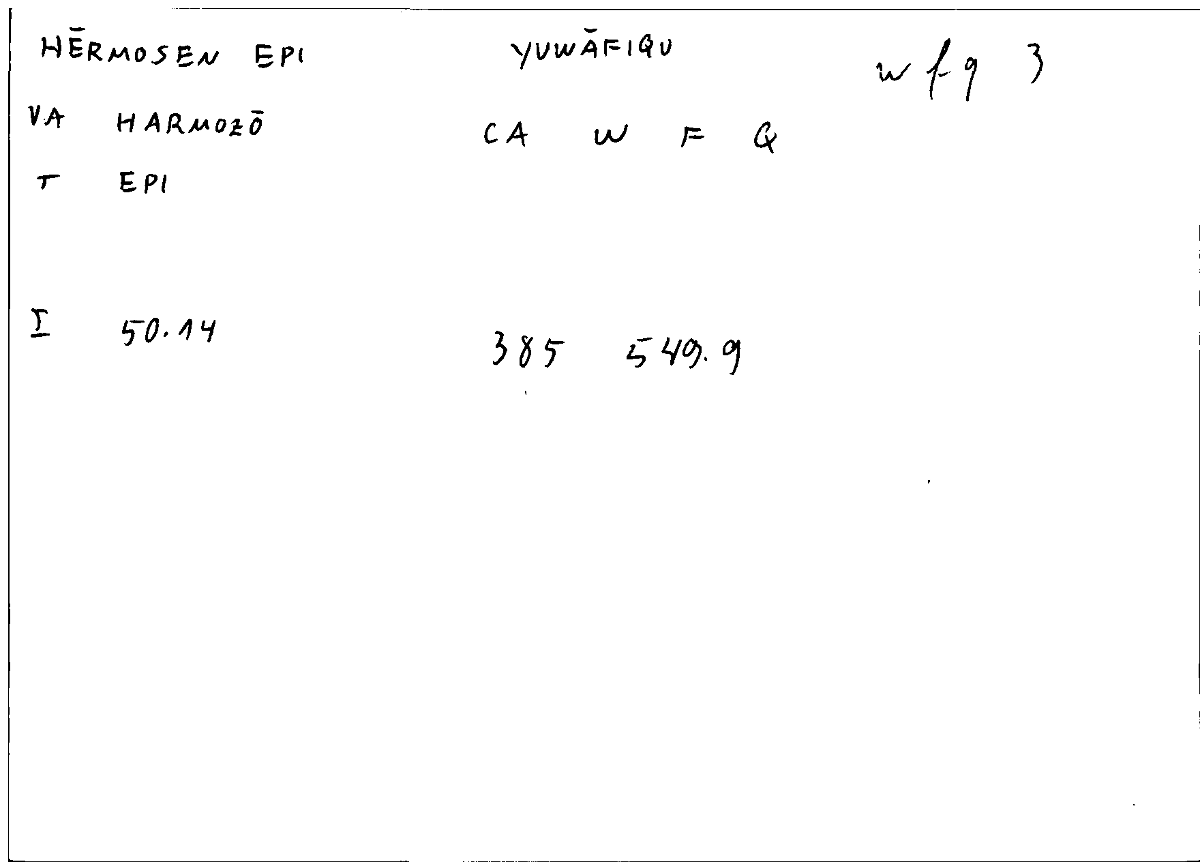 HĒRMOSEN EPI YUWĀFIQU wfq 3
VA HARMOZŌ CA W F Q
T EPI
I 50.14 385 549.9